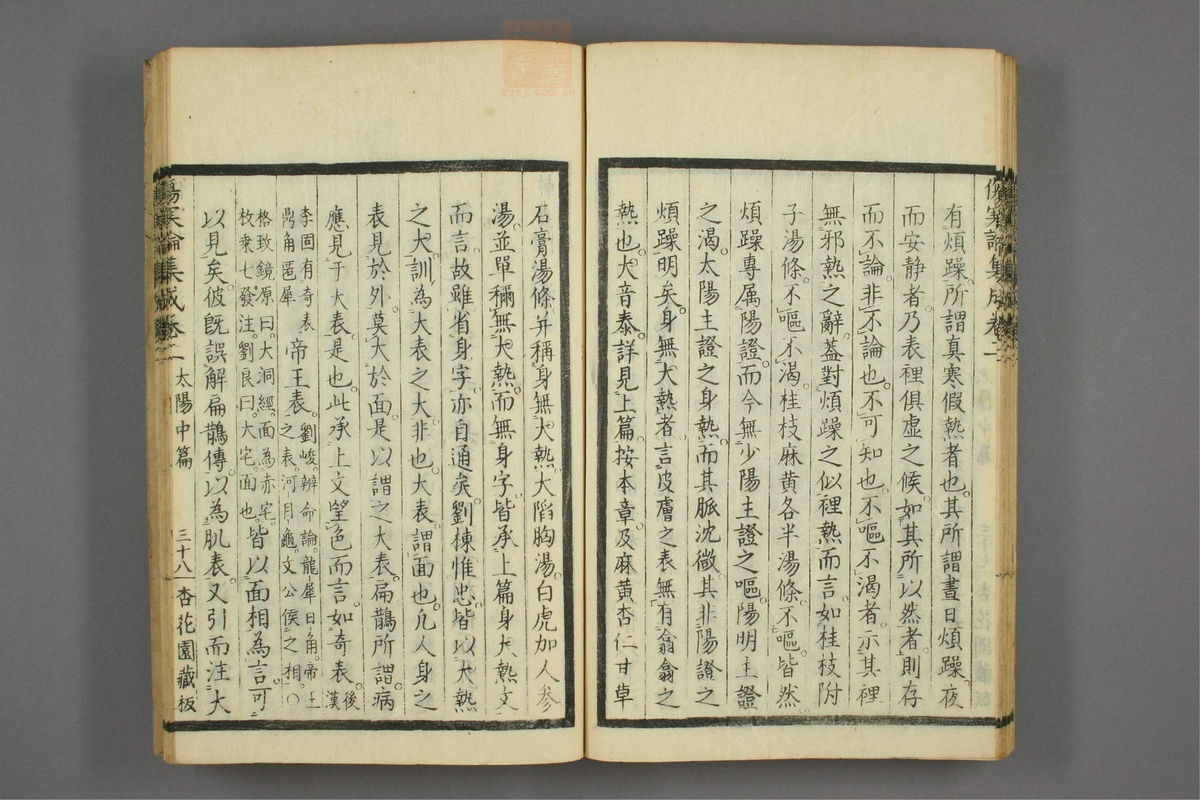 有煩躁所謂真寒假熱者也其所謂晝日煩躁夜
而安静者乃表裡俱虛之候如其所以然者則存
而不論非不論也不可知也不嘔不渴者示其裡
無邪熱之辭葢對煩躁之似裡熱而言如桂枝附
子湯條不嘔不渴桂枝麻黄各半湯條不嘔皆然
煩躁專属陽證而今無少陽主證之嘔陽明主證
之渴太陽主證之身熱而其脈沈微其非陽證之
煩躁明矣身無大熱者言皮膚之表無有翕翕之
熱也大音泰詳見上篇按本章及麻黄杏仁甘草
石膏湯條并稱身無大熱大陷胸湯白虎加人參
湯並單稱無大熱而無身字皆承上篇身大熱文
而言故雖省身字亦自通矣劉棟惟忠皆以大熱
之大訓為大表之大非也大表謂面也凢人身之
表見於外莫大於面是以謂之大表扁鵲所謂病
應見于大表是也此承上文望色而言如奇表後漢
李固有奇表鼎角匿犀帝王表劉峻辨命論龍犀日角帝王之表河目龜文公侯之相〇
格致鏡原曰大洞經面為赤宅枚乗七發注劉良曰大宅面也皆以面相為言可
以見矣彼既誤解扁鵲傳以為肌表又引而注大
傷寒論集成卷二 太陽中篇 三十八 杏花園藏板